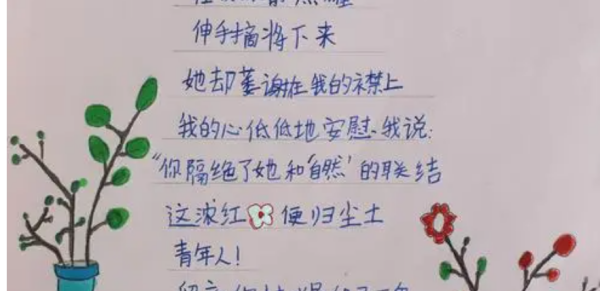 伸手摘将下来
她却萎谢在我的襟上
我的心低低地安慰我说:
“你隔绝了她和‘自然’的联结
这浓红便归尘土
青年人!